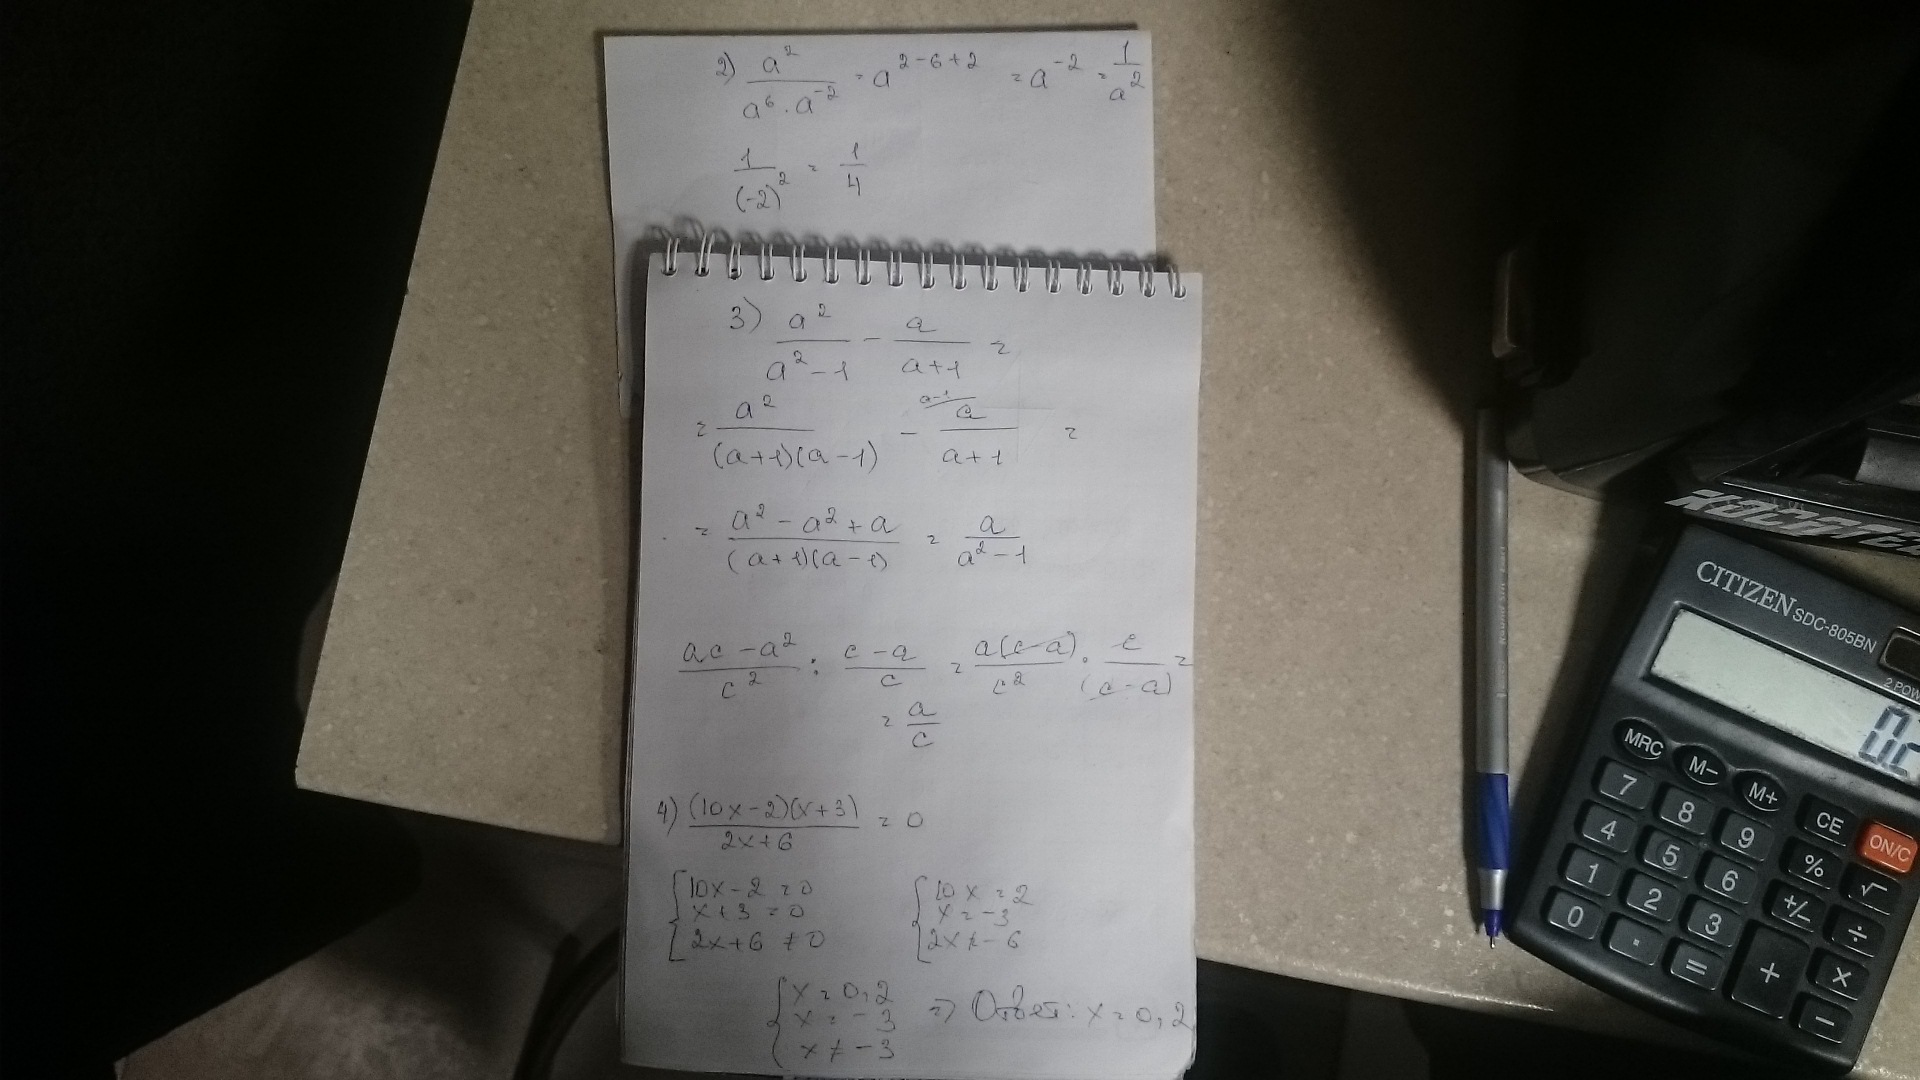 2) a² / (a⁶ · a⁻²) = a²⁻⁶⁺² = a⁻² = 1/a²
1/(-2)² = 1/4
3) a²/(a²-1) - a/(a+1) =
= a²/((a+1)(a-1)) - ᵃ⁻¹⁄ a/(a+1) =
= (a² - a² + a)/((a+1)(a-1)) = a/(a²-1)
(ac - a²)/c² : (c-a)/c = a(c-a)/c² · c/(c-a) =
= a/c
4) (10x-2)(x+3)/(2x+6) = 0
{10x-2 = 0 {10x = 2
x+3 = 0 x = -3
2x+6 ≠ 0 2x ≠ -6
{x = 0,2
x = -3 => Ответ: x = 0,2
x ≠ -3
CITIZEN SDC-805BN
2 POW
MRC M- M+ CE ON/C
7 8 9 % √
4 5 6 +/- ÷
1 2 3 + ×
0 · = -